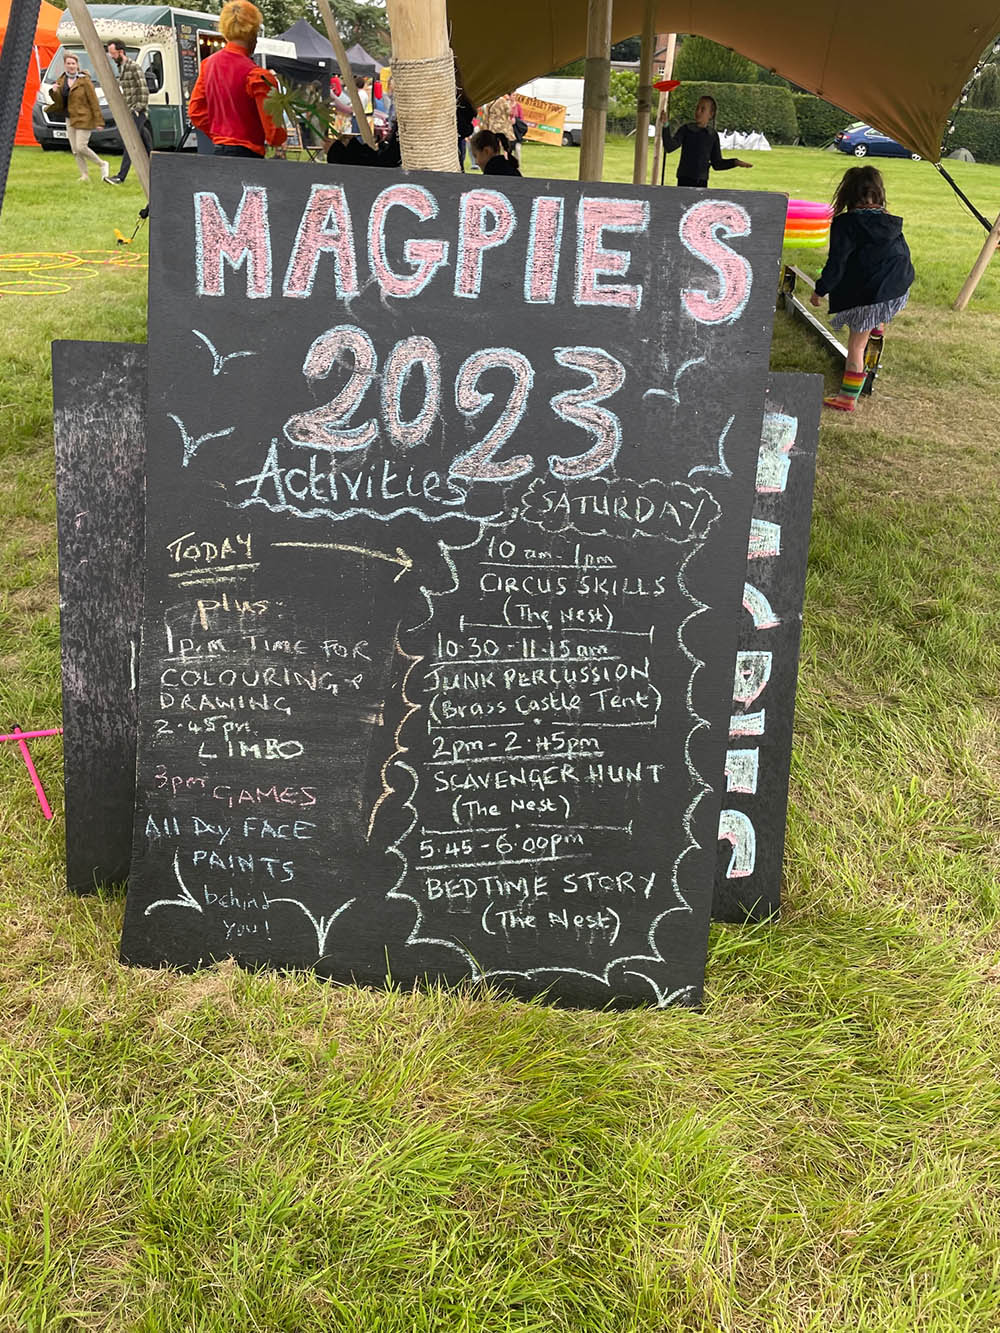 MAGPIES
2023
Activities
SATURDAY
TODAY
plus
1p.m TIME FOR
COLOURING &
DRAWING
2.45pm
LIMBO
3pm GAMES
All Day FACE
PAINTS
behind
you!
10 am - 1pm
CIRCUS SKILLS
(The Nest)
10.30 - 11.15am
JUNK PERCUSSION
(Brass Castle Tent)
2pm - 2.45pm
SCAVENGER HUNT
(The Nest)
5.45 - 6.00pm
BEDTIME STORY
(The Nest)